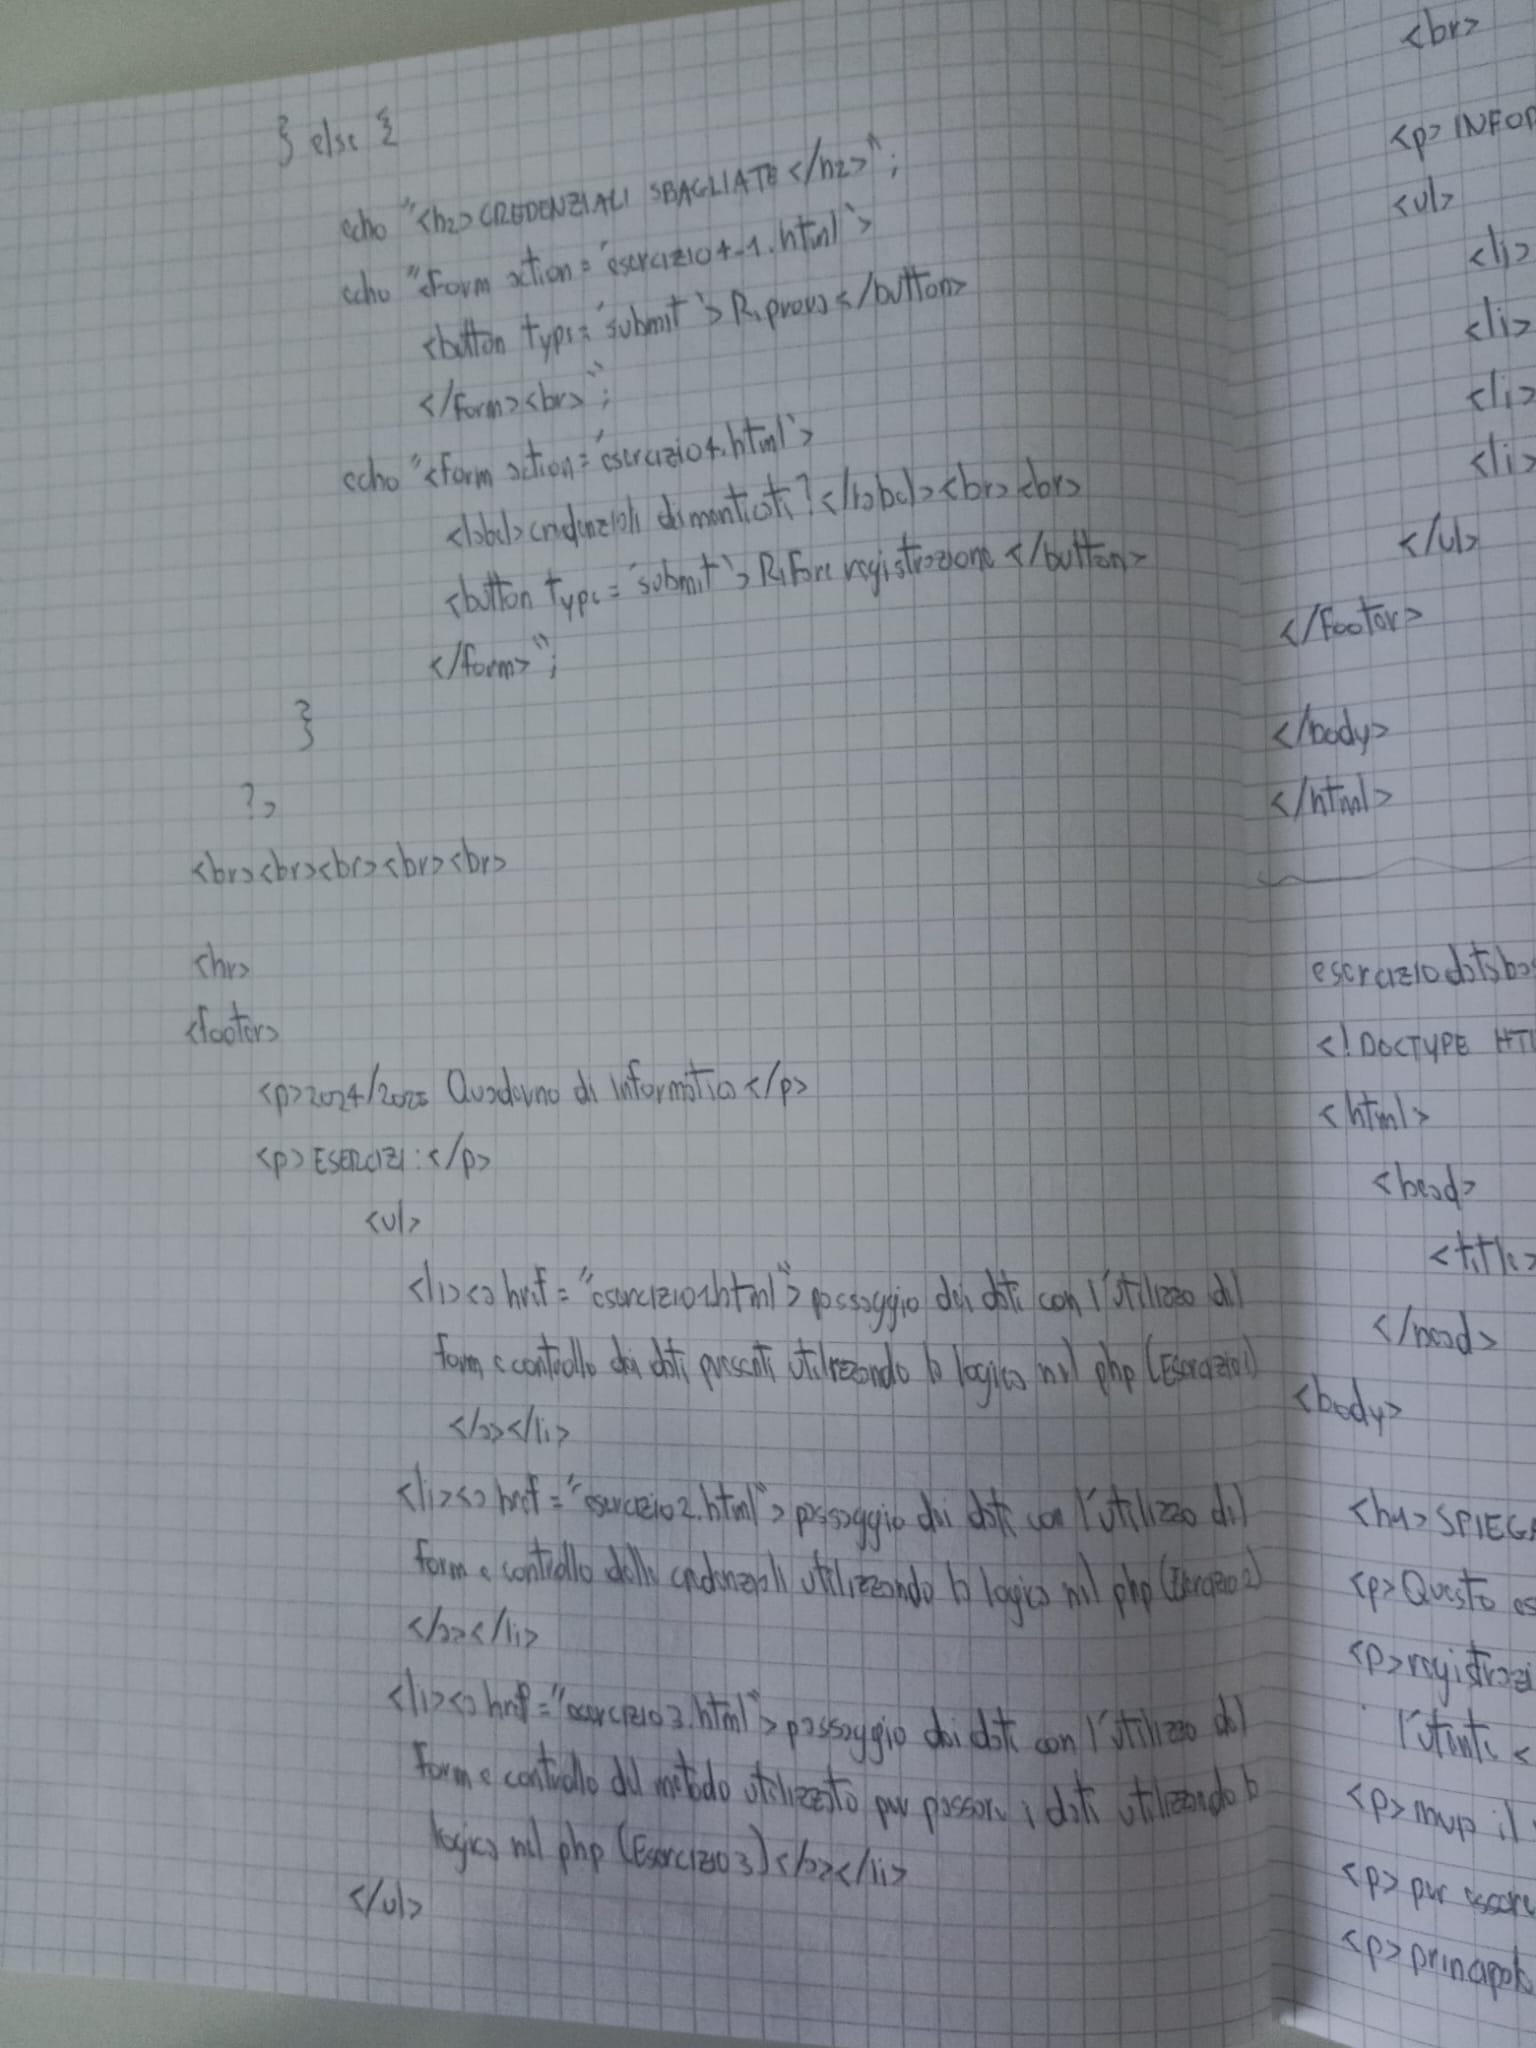 } else {
echo "<h2>CREDENZIALI SBAGLIATE</h2>";
echo "<form action='esercizio4-1.html'>
<button type='submit'>Riprova</button>
</form><br>";
echo "<form action='esercizio4.html'>
<label>credenziali dimenticati?</label><br><br>
<button type='submit'>Rifare registrazione</button>
</form>";
}
?>
<br><br><br><br><br>
<hr>
<footer>
<p>2024/2025 Quaderno di Informatica</p>
<p>ESERCIZI:</p>
<ul>
<li><a href="esercizio1.html">passaggio dei dati con l'utilizzo del
form e controllo dei dati presenti utilizzando la logica nel php (Esercizio1)
</a></li>
<li><a href="esercizio2.html">passaggio dei dati con l'utilizzo del
form e controllo delle credenziali utilizzando la logica nel php (Esercizio2)
</a></li>
<li><a href="esercizio3.html">passaggio dei dati con l'utilizzo del
form e controllo del metodo utilizzato per passare i dati utilizzando la
logica nel php (Esercizio3)</a></li>
</ul>
<br>
<p>INFOR
<ul>
<li>
<li>
<li>
<li>
</ul>
</footer>
</body>
</html>
esercizio databas
<!DOCTYPE HTM
<html>
<head>
<title>
</head>
<body>
<h1>SPIEGA
<p>Questo es
<p>registrazi
l'utente <
<p>mvp il
<p>per essere
<p>principale